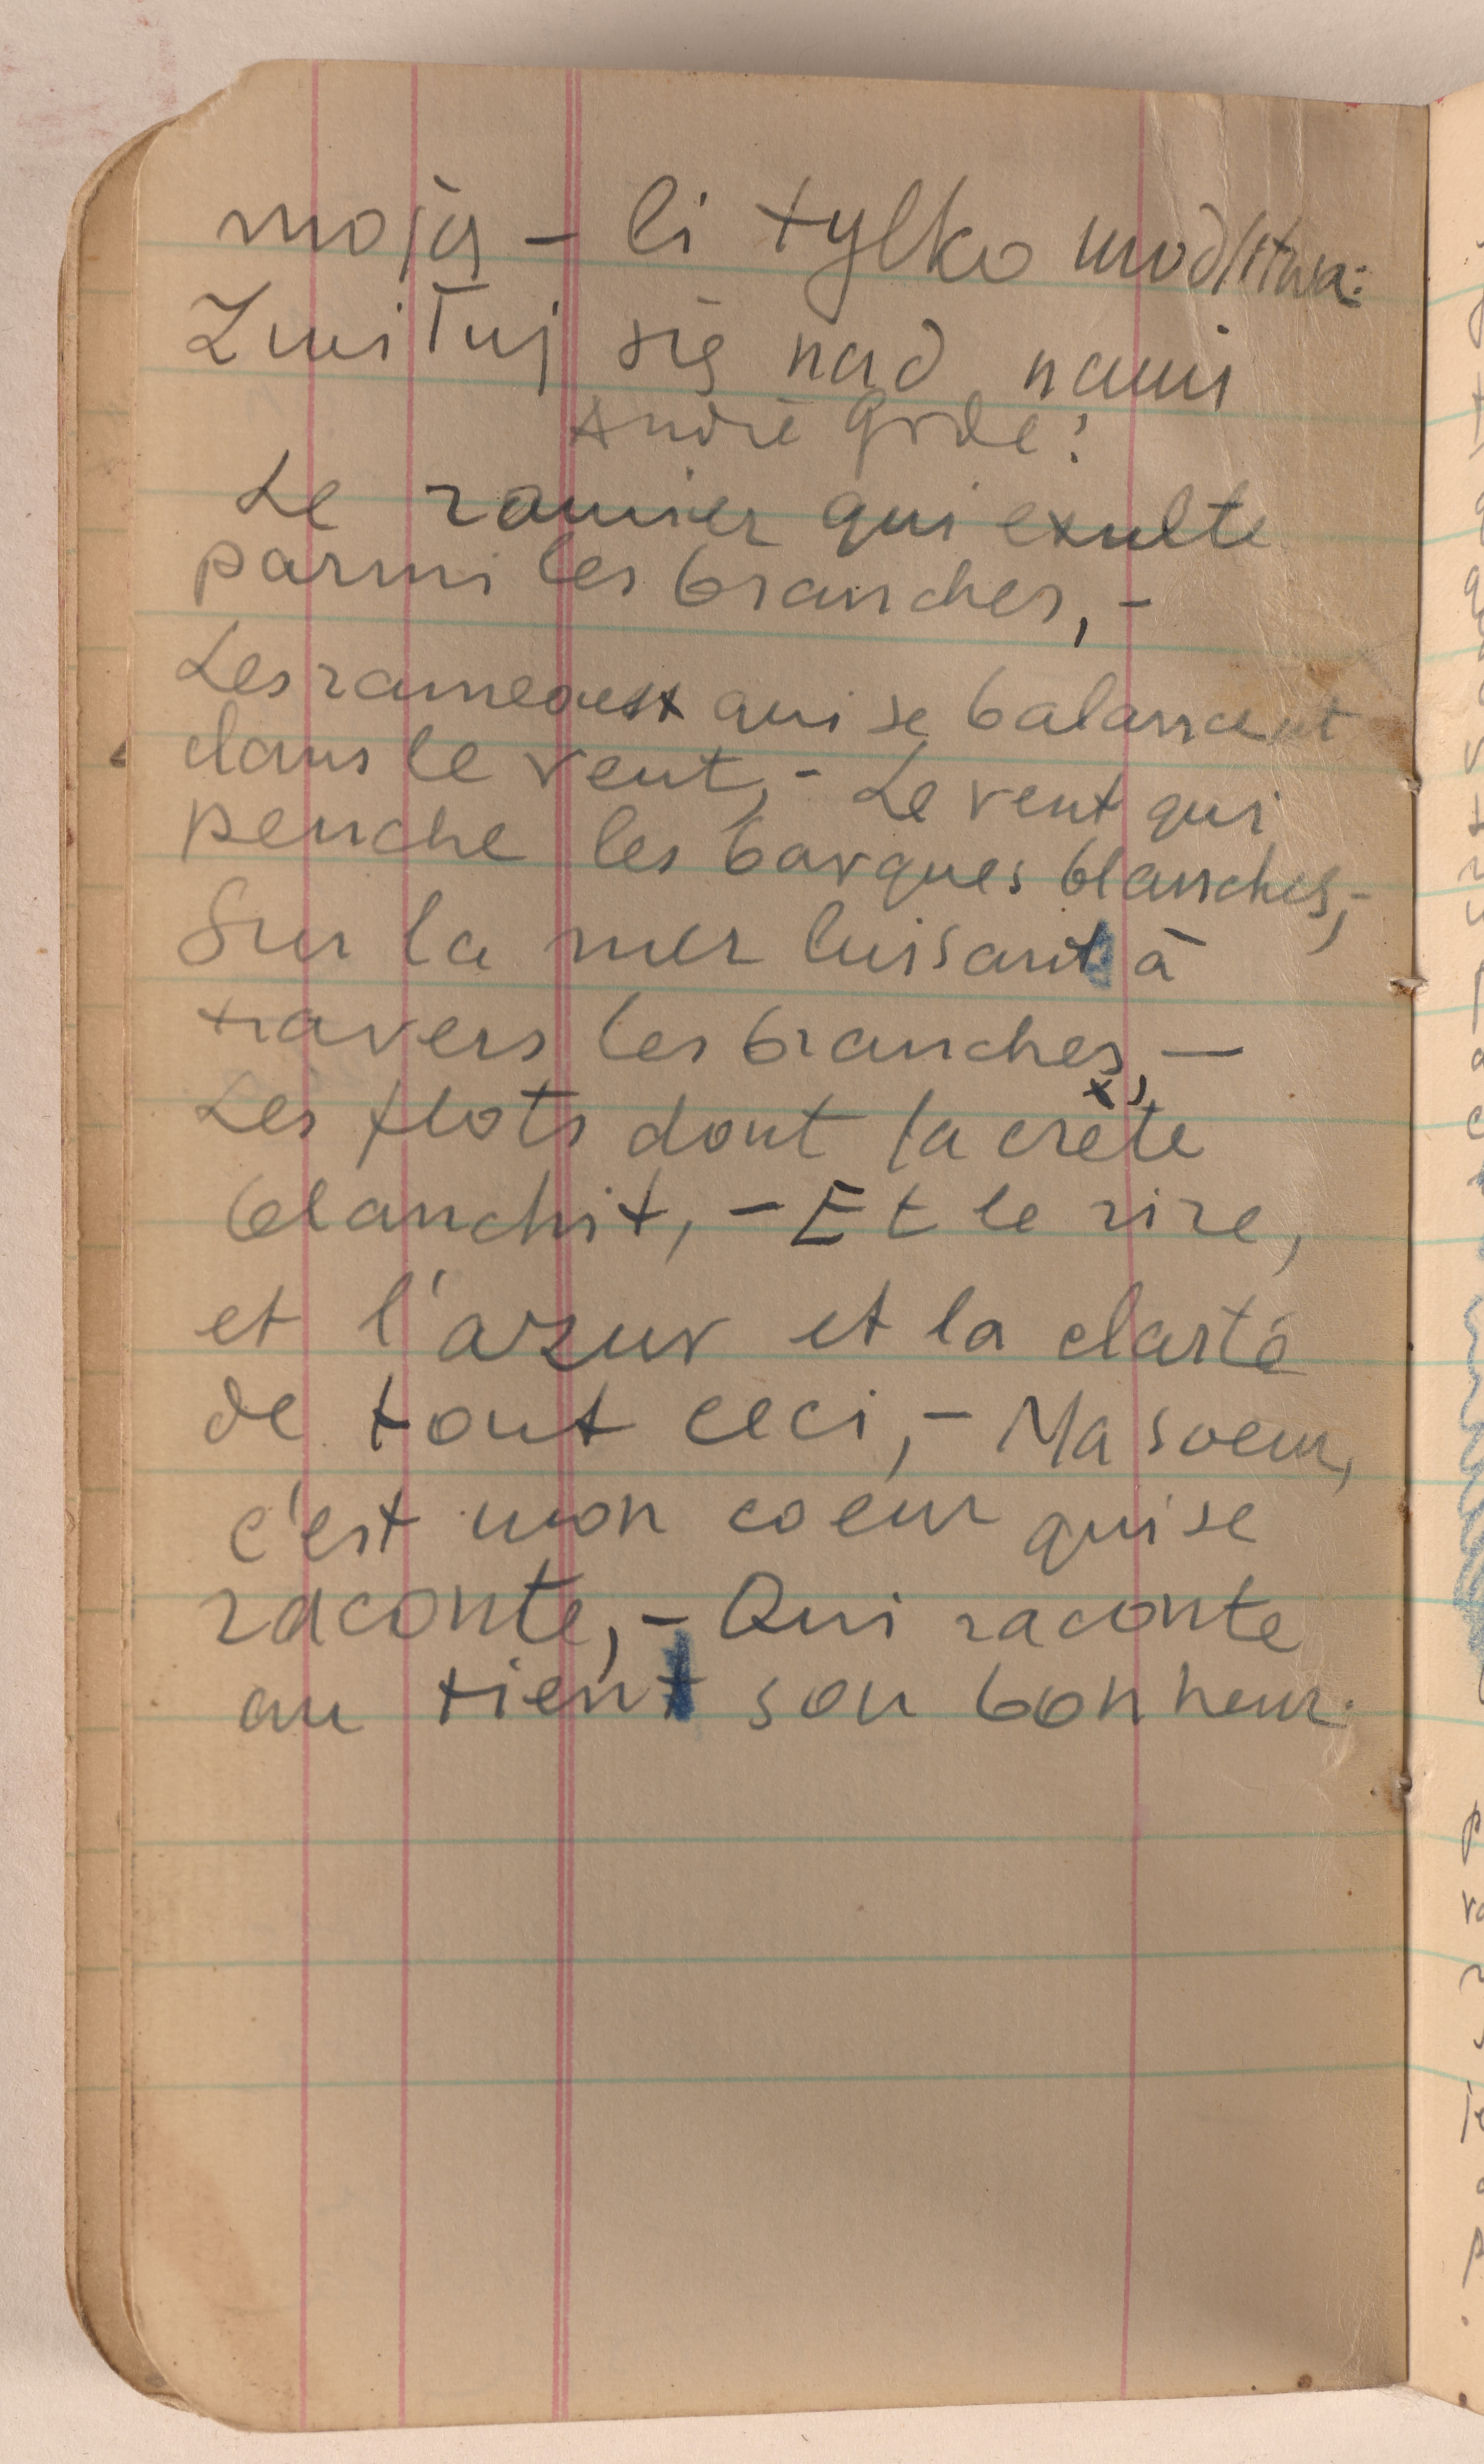 moją – li tylko modlitwa:
Zmiłuj się nad nami
André Gide:
Le ramier qui exulte
parmi les branches, –
Les rameaux qui se balancent
dans le vent, – Le vent qui
penche les barques blanches, –
Sur la mer luisant à
travers les branches, –
Les flots dont la crête
blanchit, – Et le rire,
et l'azur et la clarté
de tout ceci, – Ma soeur,
c'est mon coeur qui se
raconte, – Qui raconte
au tien son bonheur.